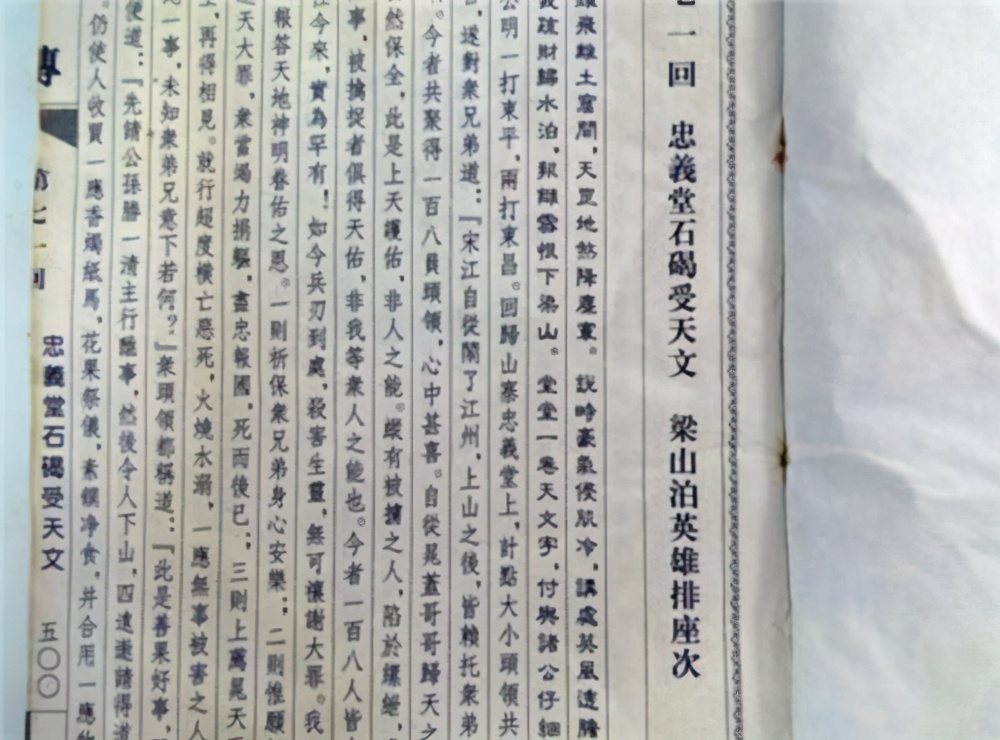 一回　忠義堂石碣受天文　梁山泊英雄排座次
飛離土窟間，天罡地煞降塵寰。說時豪氣侵肌冷，講處英風透膽
疏財歸水泊，報讎雪恨下梁山。堂堂一卷天文字，付與諸公仔細
公明一打東平，兩打東昌。回歸山寨忠義堂上，計點大小頭領共
遂對衆兄弟道：『宋江自從鬧了江州，上山之後，皆賴托衆弟
今者共聚得一百八員頭領，心中甚喜。自從晁蓋哥哥歸天之
然保全，此是上天護佑，非人之能。縱有被擄之人，陷於縲絏，
事，被擒捉者俱得天佑，非我等衆人之能也。今者一百八人皆
今來，實為罕有！如今兵刃到處，殺害生靈，無可禳謝大罪。我
報答天地神明眷佑之恩。一則祈保衆兄弟身心安樂；二則惟願
天大罪，衆當竭力捐軀，盡忠報國，死而後已；三則上薦晁天
再得相見。就行超度橫亡惡死，火燒水溺，一應無辜被害之人
一事，未知衆弟兄意下若何？』衆頭領都稱道：『此是善果好事，
便道：『先請公孫勝一清主行醮事，然後令人下山，四遠邀請得道
仍使人收買一應香燭紙馬，花果祭儀，素饌淨食，并合用一應
傳　第七一回　忠義堂石碣受天文　五〇〇